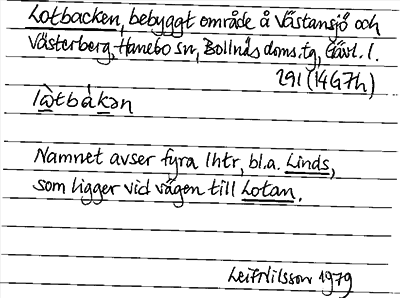 Lotbacken, bebyggt område å Västansjö och
Västerberg, Hanebo sn, Bollnäs doms.tg, Gävl. l.
291 (14G7h)
là̱tbàḵən
Namnet avser fyra lhtr, bl.a. Linds,
som ligger vid vägen till Lotan.
Leif Nilsson 1979